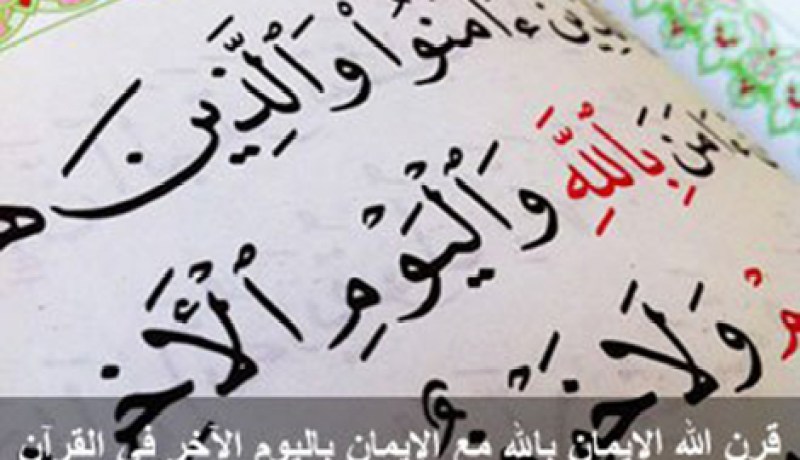 ءامنوا والذين ه
ءامن بالله واليوم الأخر
ولا خو
قرن الله الإيمان بالله مع الإيمان باليوم الآخر في القرآن